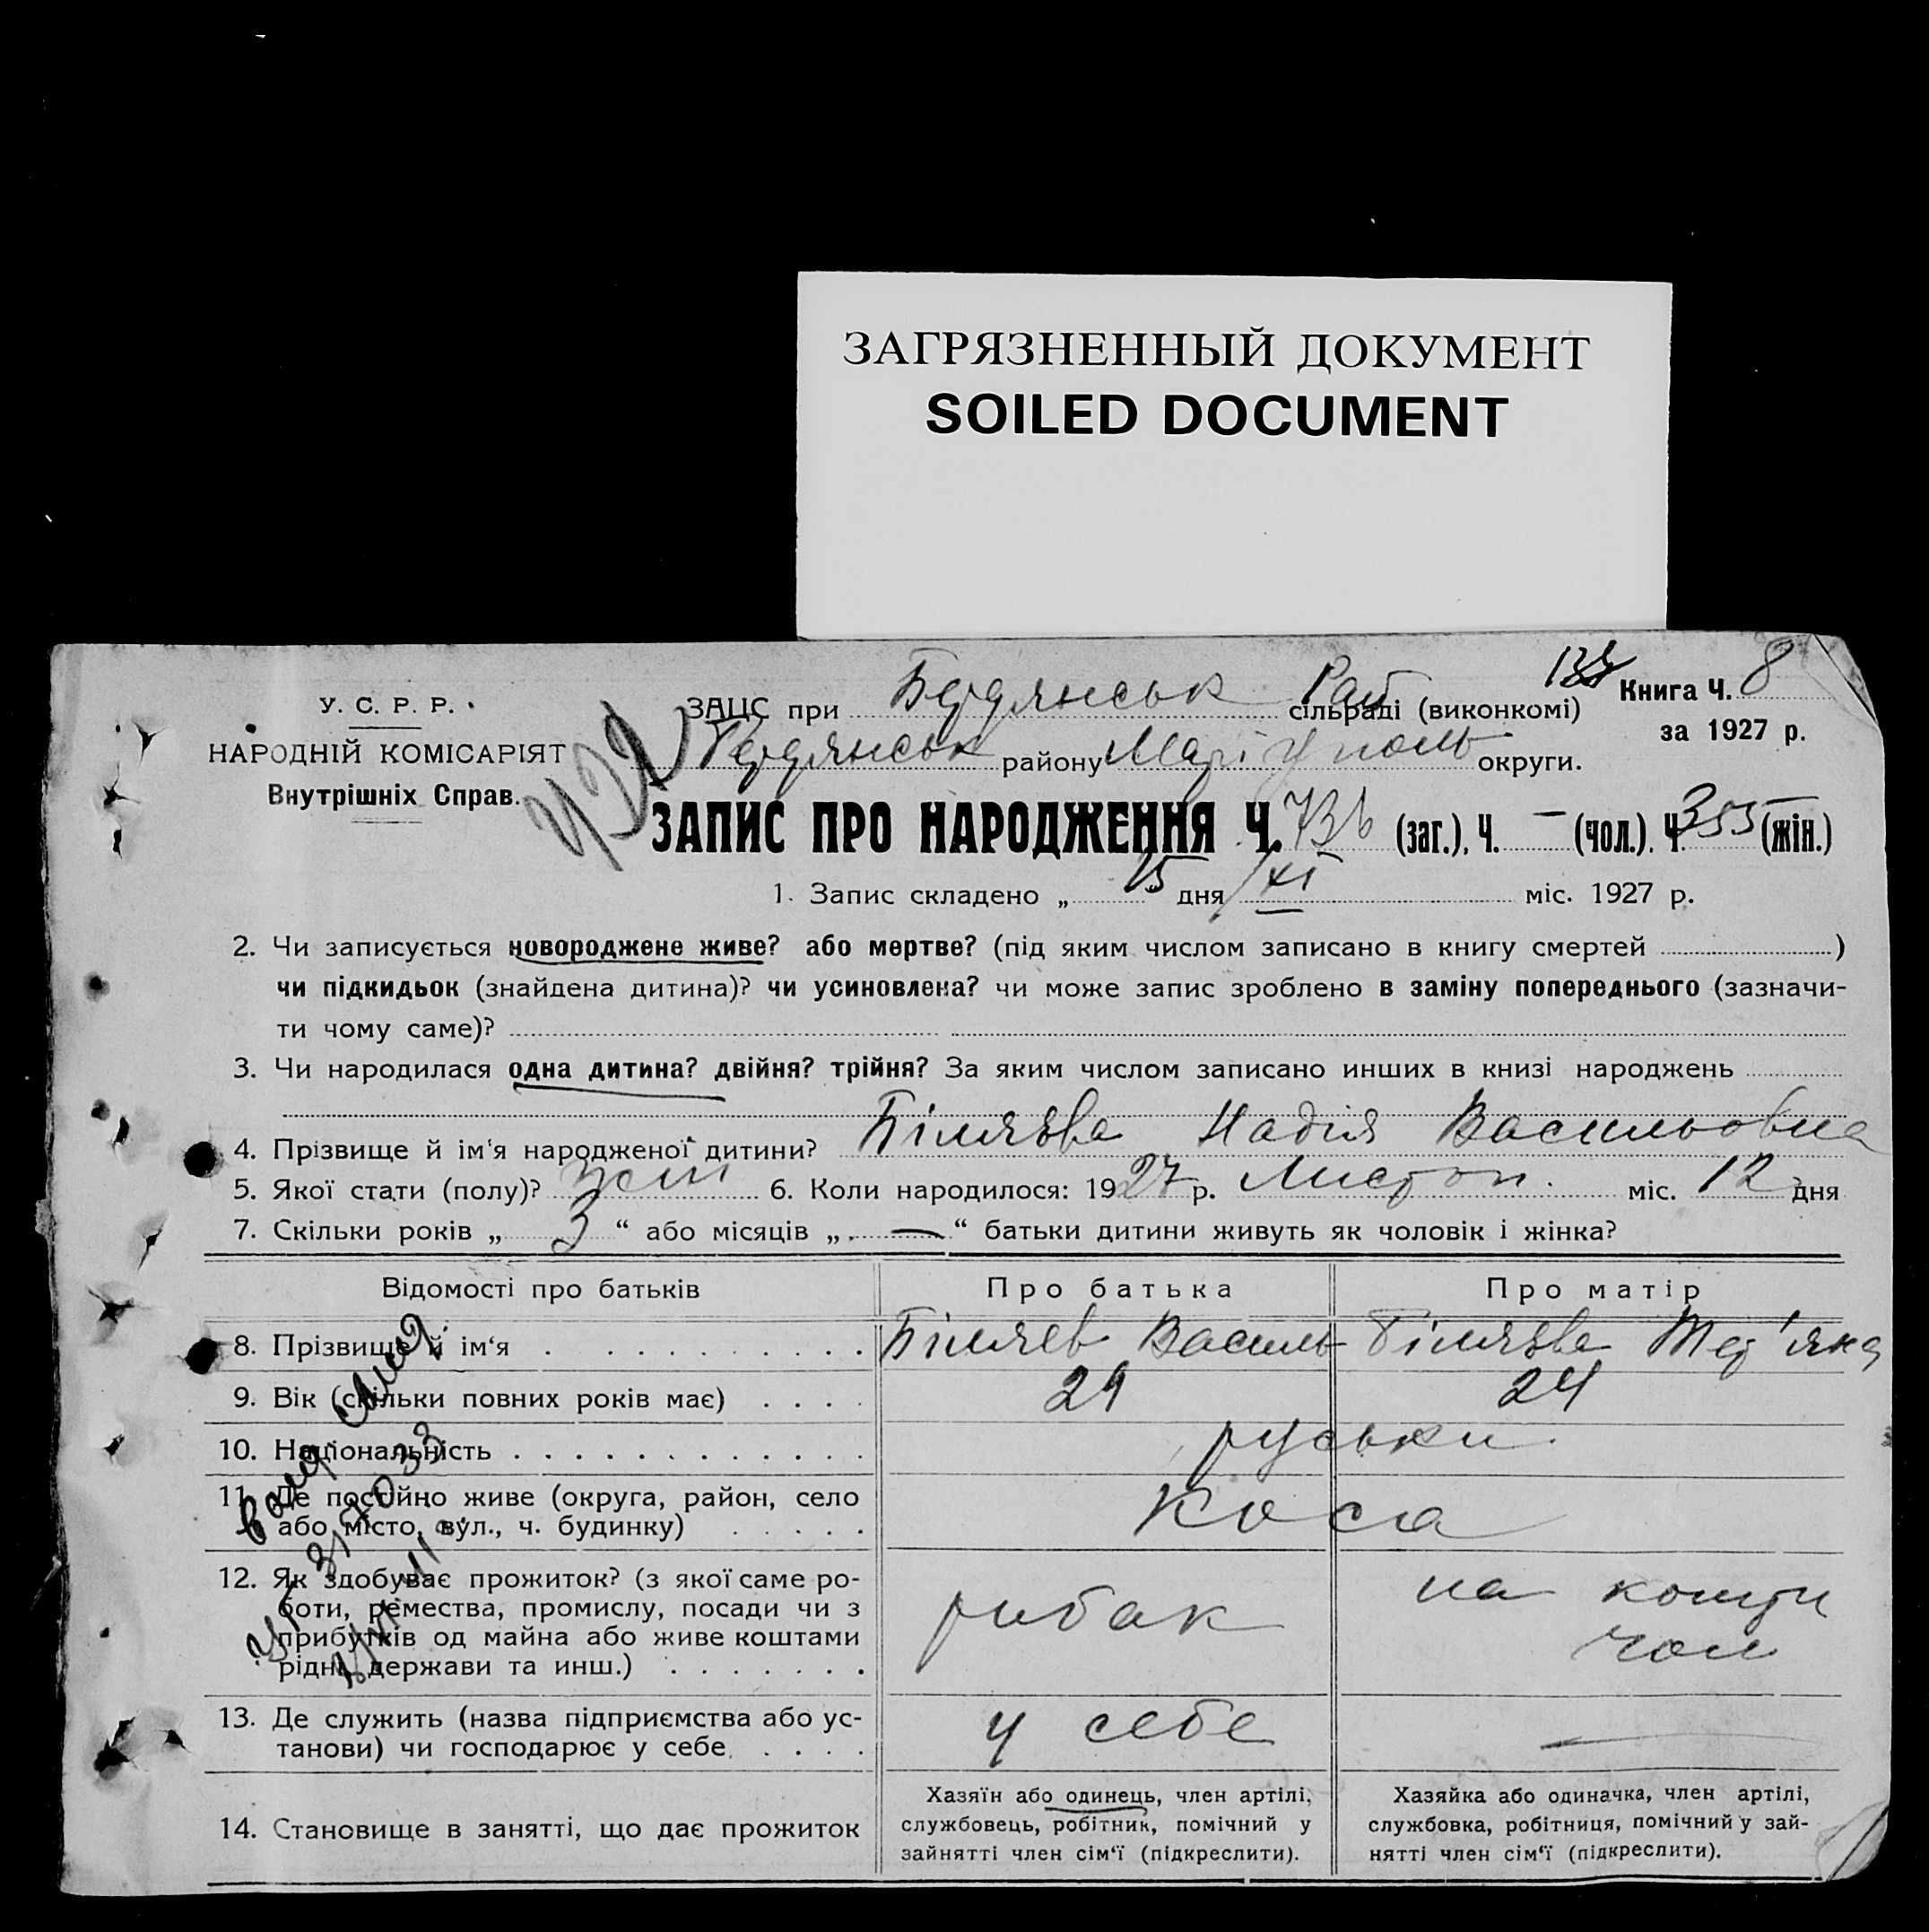 ЗАГРЯЗНЕННЫЙ ДОКУМЕНТ
SOILED DOCUMENT
У. С. Р. Р.
НАРОДНІЙ КОМІСАРІЯТ
Внутрішніх Справ.
ЗАЦС при Бердянськ Рай сільраді (виконкомі)
Книга Ч. 8
за 1927 р.
Бердянськ району Маріуполь округи.
ЗАПИС ПРО НАРОДЖЕННЯ Ч. 736 (заг.), Ч. — (чол.). Ч. 355 (жін.)
1. Запис складено „ 15 дня XI міс. 1927 р.
2. Чи записується новороджене живе? або мертве? (під яким числом записано в книгу смертей )
чи підкидьок (знайдена дитина)? чи усиновлена? чи може запис зроблено в заміну попереднього (зазначи-
ти чому саме)?
3. Чи народилася одна дитина? двійня? трійня? За яким числом записано инших в книзі народжень
4. Прізвище й ім‘я народженої дитини? Біляєва Надія Васильовна
5. Якої стати (полу)? жін 6. Коли народилося: 1927 р. Листоп. міс. 12 дня
7. Скільки років „ 3 “ або місяців „ — “ батьки дитини живуть як чоловік і жінка?
Відомості про батьків Про батька Про матір
8. Прізвище й ім‘я Біляєв Василь Біляєва Тет'яна
9. Вік (скільки повних років має) 24 24
10. Національність руськи
11. Де постійно живе (округа, район, село
або місто, вул., ч. будинку) Коса
12. Як здобуває прожиток? (з якої саме ро-
боти, ремества, промислу, посади чи з
прибутків од майна або живе коштами
рідні, держави та инш.) рибак на кошти чол
13. Де служить (назва підприємства або ус-
танови) чи господарює у себе у себе —
14. Становище в занятті, що дає прожиток
Хазяїн або одинець, член артілі,
службовець, робітник, помічний у
зайнятті член сім‘ї (підкреслити).
Хазяйка або одиначка, член артілі,
службовка, робітниця, помічний у зай-
нятті член сім‘ї (підкреслити).